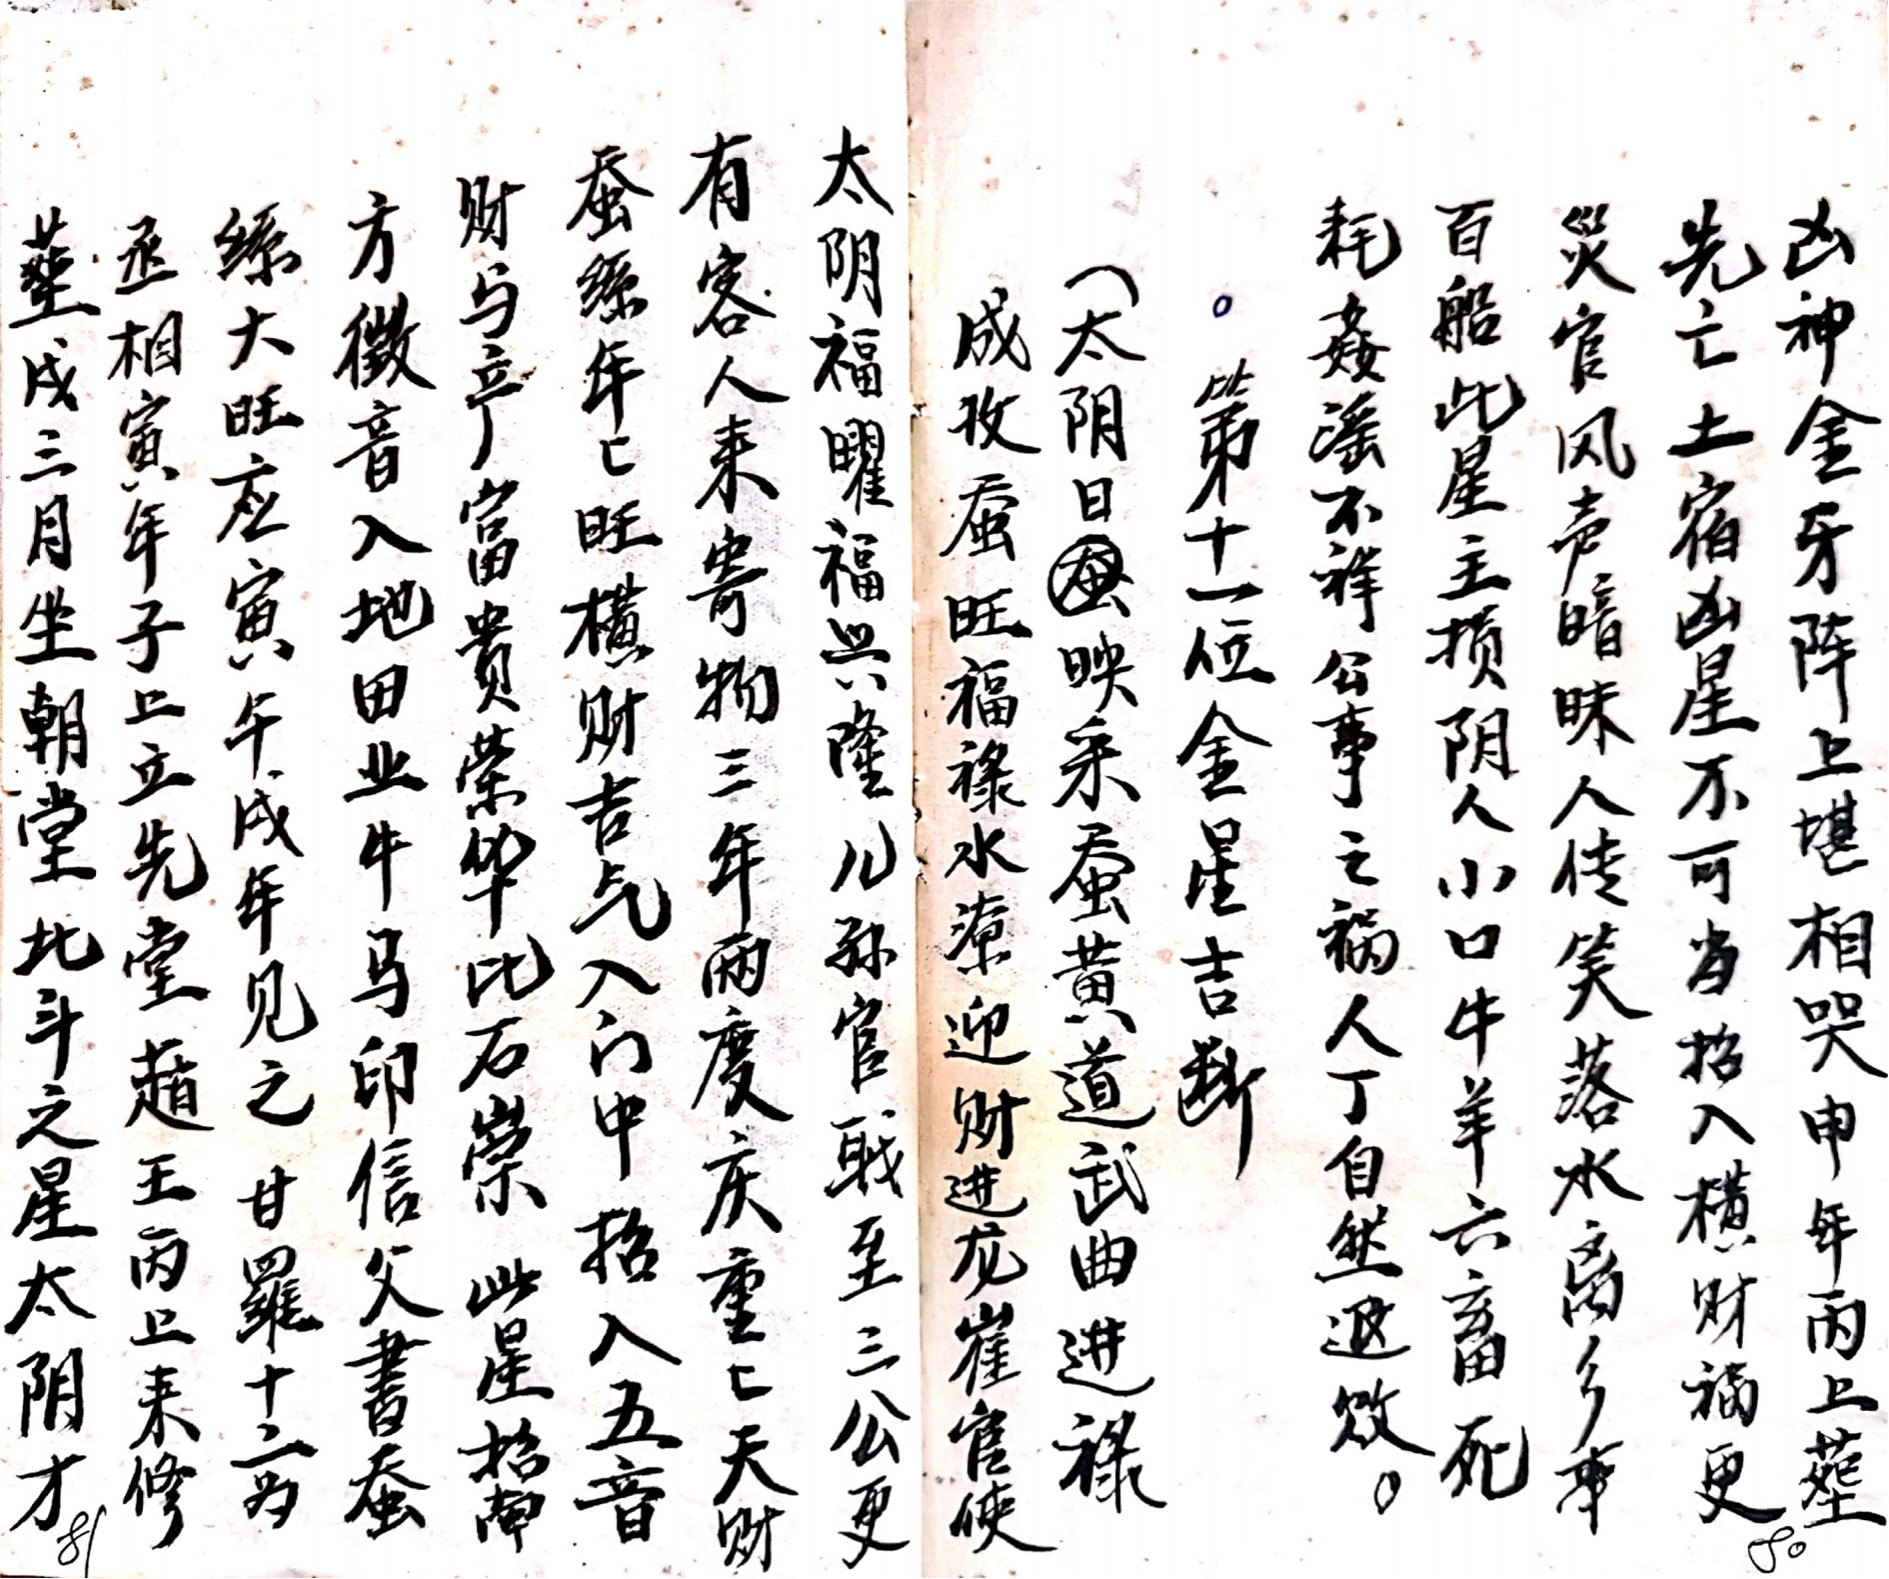 凶神金牙阵上堪相哭申年丙上葬
先亡土宿凶星不可当招入横财祸更
災官风声暗昧人传笑落水离乡事
百船此星主损阴人小口牛羊六畜死
耗姦滛不祥公事之祸人丁自然退败。
。第十一位金星吉断
(太阴日蚕映采蚕黄道武曲进禄
成攻蚕旺福禄水潦迎财进龙崔官使
太阴福曜福兴隆儿孙官戢至三公更
有客人来寄物三年两度庆重匕天财
蚕絲年匕旺横财吉气入门中招入五音
财马产富贵荣华比石崇 此星招南
方徵音入地田业牛马印信父書蚕
絲大旺应寅午戌年见之 甘羅十二为
丞相寅年子上立先堂趙王丙上来修
葬戌三月坐朝堂北斗之星太阴才
80
81